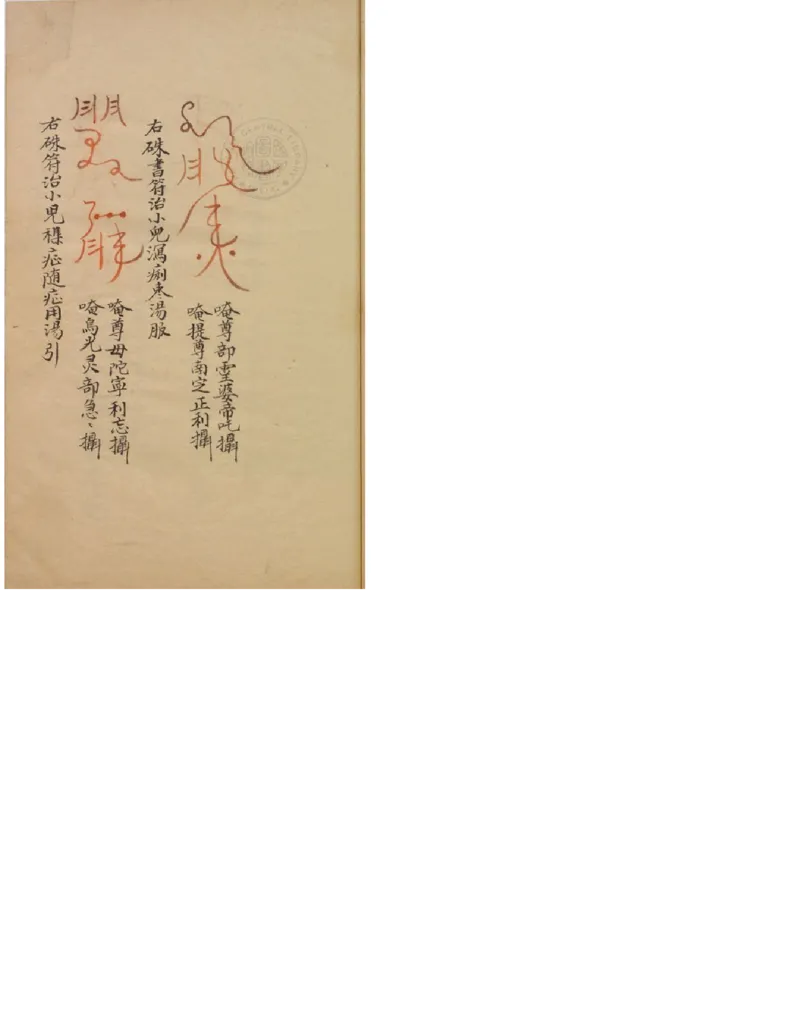 唵尊部靈婆帝吒攝
唵提尊南定正利攝
右硃書符治小兒瀉痢枣湯服
唵尊毋陀寧利忘攝
唵烏光灵部急〻攝
右硃符治小兒襍症随症用湯引